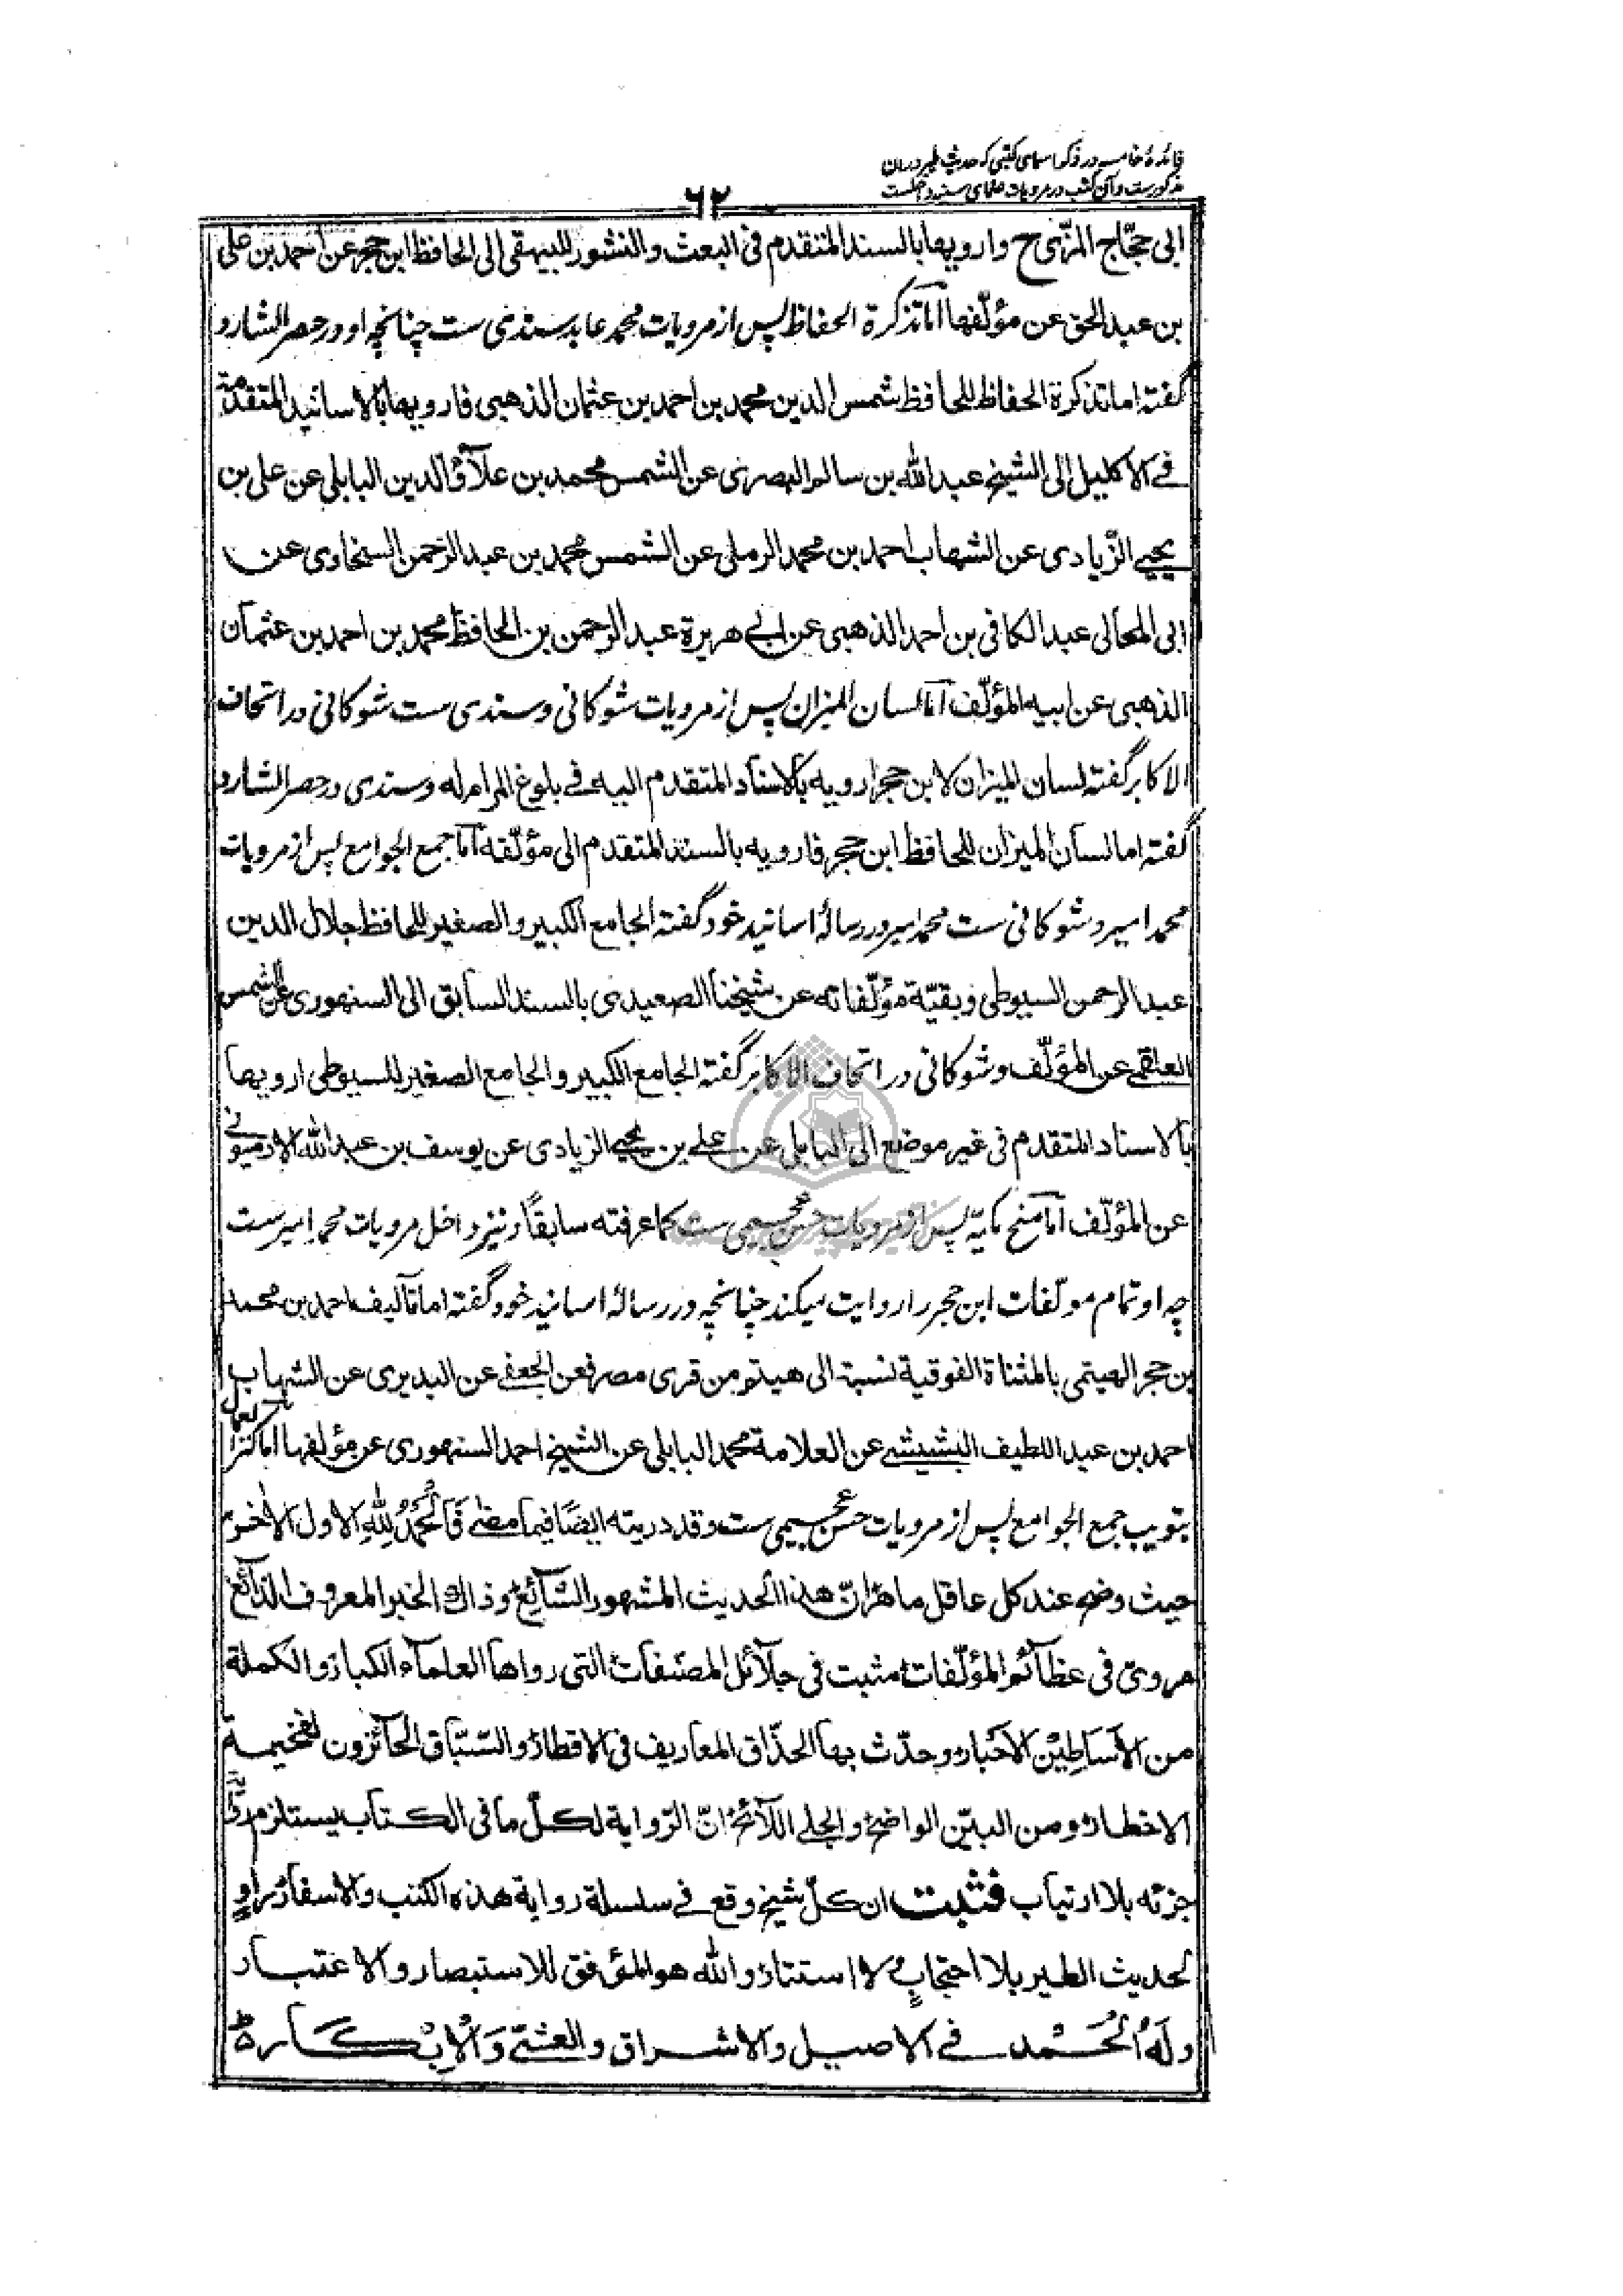 فائدهٔ خامسه در ذکر اسمای کتبی که حدیث طیر در ان
مذکورست و آن کتب در مرویات علمای سنیه داخلست
٦٢
ابی حجّاج المزّی ح وارویها بالسند المتقدم فی البعث والنشور للبیهقی الی الحافظ ابن حجر عن احمد بن علی
بن عبد الحق عن مؤلّفها امّا تذکرة الحفاظ پس از مرویات محمد عابد سندی ست چنانچه او در حصر الشارد
گفته اما تذکرة الحفاظ للحافظ شمس الدین محمد بن احمد بن عثمان الذهبی فارویها بالاسانید المتقدمة
فی الاکلیل الی الشیخ عبد الله بن سالم البصری عن الشمس محمد بن علآؤ الدین البابلی عن علی بن
یحیی الزّیادی عن الشهاب احمد بن محمد الرملی عن الشمس محمد بن عبد الرحمن السخاوی عن
ابی المعالی عبد الکافی بن احمد الذهبی عن ابی هریرة عبد الرحمن بن الحافظ محمد بن احمد بن عثمان
الذهبی عن ابیه المؤلّف امّا لسان المیزان پس از مرویات شوکانی و سندی ست شوکانی در اتحاف
الاکابر گفته لسان المیزان لابن حجر ارویه بالاسناد المتقدم الیه فی بلوغ المرام له و سندی در حصر الشارد
گفته اما لسان المیزان للحافظ ابن حجر فارویه بالسند المتقدم الی مؤلّفه امّا جمع الجوامع پس از مرویات
محمد امیر و شوکانی ست محمد امیر در رسالهٔ اسانید خود گفته الجامع الکبیر والصغیر للحافظ جلال الدین
عبد الرحمن السیوطی وبقیّة مؤلّفاته عن شیخنا الصعیدی بالسند السابق الی السنهوری عن الشمس
العلقمی عن المؤلّف و شوکانی در اتحاف الاکابر گفته الجامع الکبیر والجامع الصغیر للسیوطی ارویها
بالاسناد المتقدم فی غیر موضع الی البابلی عن علی بن یحیی الزیادی عن یوسف بن عبد الله الارمیونی
عن المؤلّف امّا منح مکیّه پس از مرویات حسن عجیمی ست کما عرفته سابقًا و نیز داخل مرویات محمد امیرست
چه او تمام مولّفات ابن حجر را روایت میکند چنانچه در رسالهٔ اسانید خود گفته اما تآلیف احمد بن محمد
بن حجر الهیتمی بالمثناة الفوقیة نسبة الی هیتم من قری مصر فعن الجعفی عن البدیری عن الشهاب
احمد بن عبد اللطیف البشیشی عن العلامة محمد البابلی عن الشیخ احمد السنهوری عن مؤلفها اما کنز العمال
بتویب جمع الجوامع پس از مرویات حسن عجیمی ست وقد دریته ایضًا فیما مضی فَالْحَمْدُ لِلّهِ الاول الاخر
حیث وضح عند کل عاقل ماهر انّ هذا الحدیث المشهور الشآئع وذاك الخبر المعروف الذآئع
مرویّ فی عظآئم المؤلّفات مثبت فی جلآئل المصنفات التی رواها العلمآء الکبار والکملة
من الاَسَاطِیْن الاحبار وحدّث بها الحذّاق المعاریف فی الاقطار والسّبّاق الحآئزون لفخیمة
الاخطار ومن البیّن الواضح والجلی اللآئح انّ الرّوایة لکلّ ما فی الکتاب یستلزم روایة
جزئه بلا ارتیاب فثبت ان کلّ شیخ وقع فی سلسلة روایة هذه الکتب والاسفار راوٍ
لحدیث الطیر بلا احتجابٍ ولا استتار والله هو المؤفق للاستبصار والاعتبار
ولَهُ الْحُمْد فی الاصیل والاشراق والعشیّ وَالْاِبْکار